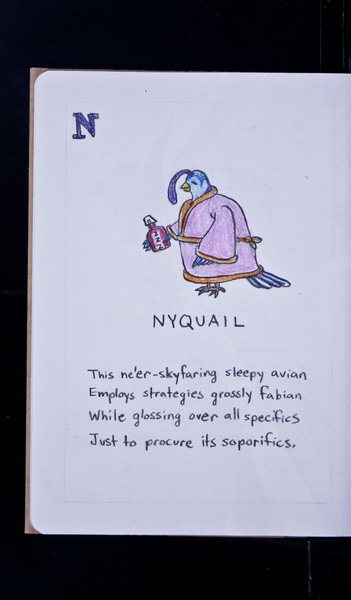 N
NYQUAIL
This ne'er-skyfaring sleepy avian
Employs strategies grossly fabian
While glossing over all specifics
Just to procure its soporifics.